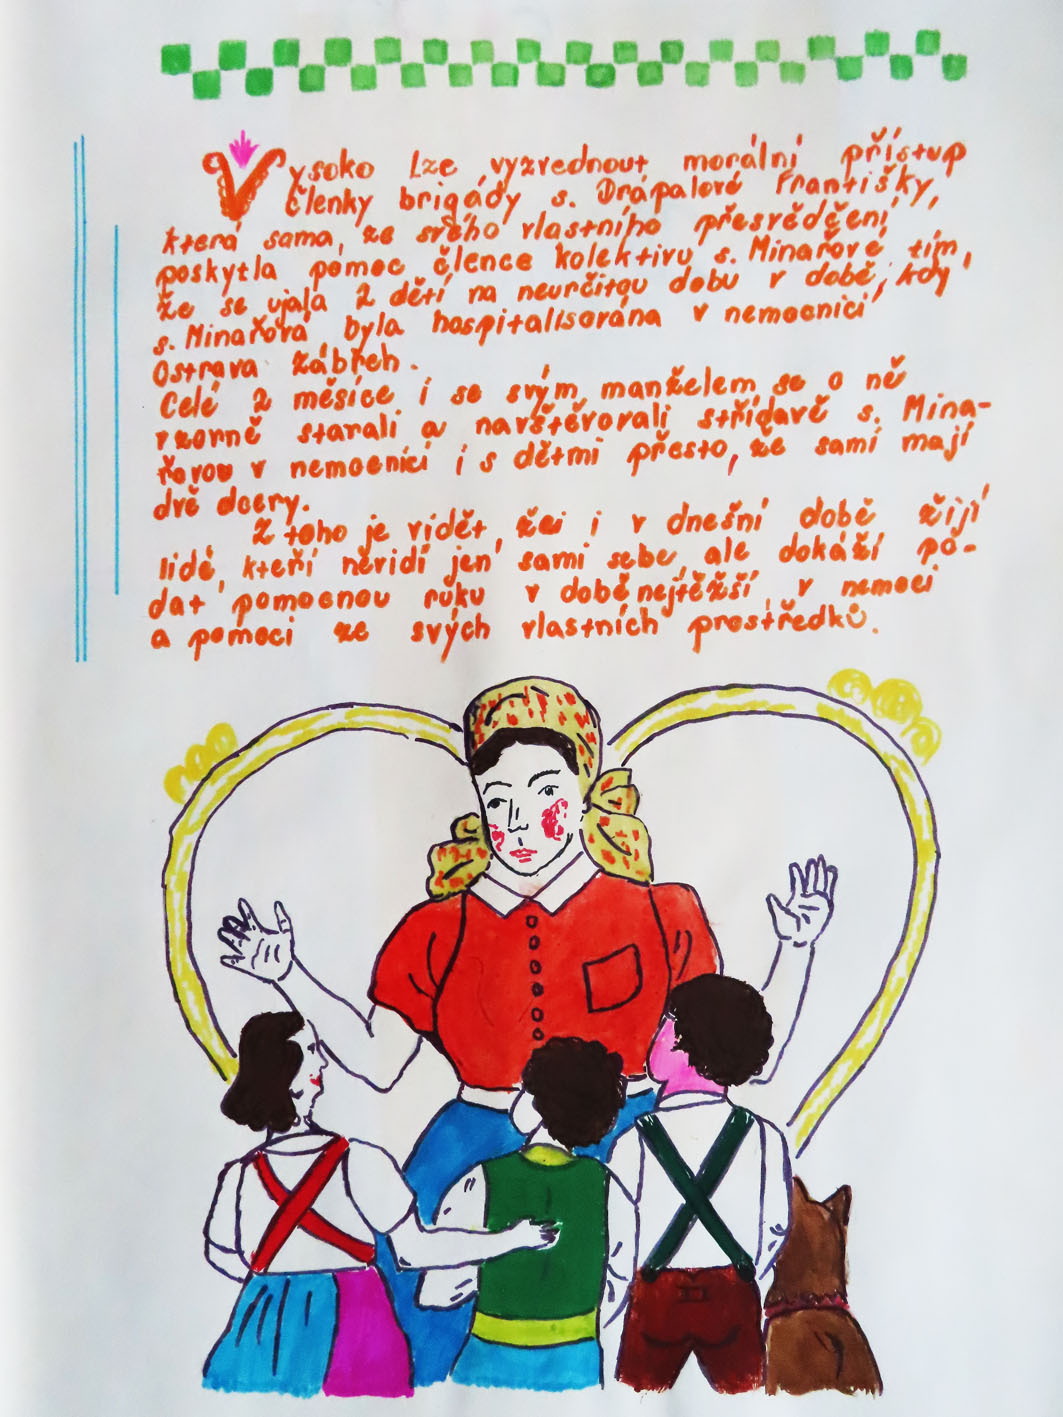 Vysoko lze vyzvednout morální přístup
členky brigády s. Drápalové Františky,
která sama, ze svého vlastního přesvědčení
poskytla pomoc člence kolektivu s. Minařové tím,
že se ujala 2 dětí na neurčitou dobu v době, kdy
s. Minařová byla hospitalisována v nemocnici
Ostrava Zábřeh.
Celé 2 měsíce i se svým manželem se o ně
vzorně starali a navštěvovali střídavě s. Mina-
řovou v nemocnici i s dětmi přesto, že sami mají
dvě dcery.
Z toho je vidět, že i v dnešní době žijí
lidé, kteří nevidí jen sami sebe, ale dokáží po-
dat pomocnou ruku v době nejtěžší, v nemoci
a pomoci ze svých vlastních prostředků.